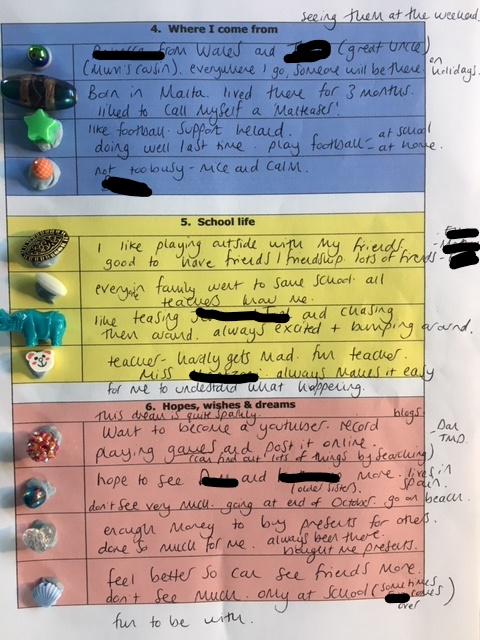 seeing them at the weekend
4. Where I come from
from Wales and (great uncle)
(Mum's cousin). everywhere I go, someone will be there. on holidays.
Born in Malta. lived there for 3 months.
liked to call myself a 'Malteaser'.
like football. Support Ireland.
doing well last time. play football - at school
- at home.
not too busy - nice and calm.
5. School life
I like playing outside with my friends.
good to have friends / friendship lots of friends -
everyone in family went to same school. all
teachers know me.
like teasing and chasing
them around. always excited + bumping around.
teacher - hardly gets mad. fun teacher.
Miss always makes it easy
for me to understand what happening.
6. Hopes, wishes & dreams
This dream is quite sparkly. blogs
Want to become a youtuber. record - Dan
playing games and post it online. TMD.
(can find out lots of things by searching)
hope to see and more - lives in
(older sisters. Spain.
don't see very much. going at end of October. go on beach.
enough money to buy presents for others.
done so much for me. always been there.
bought me presents.
feel better so can see friends more.
don't see much. only at school (sometimes
comes over)
fun to be with.